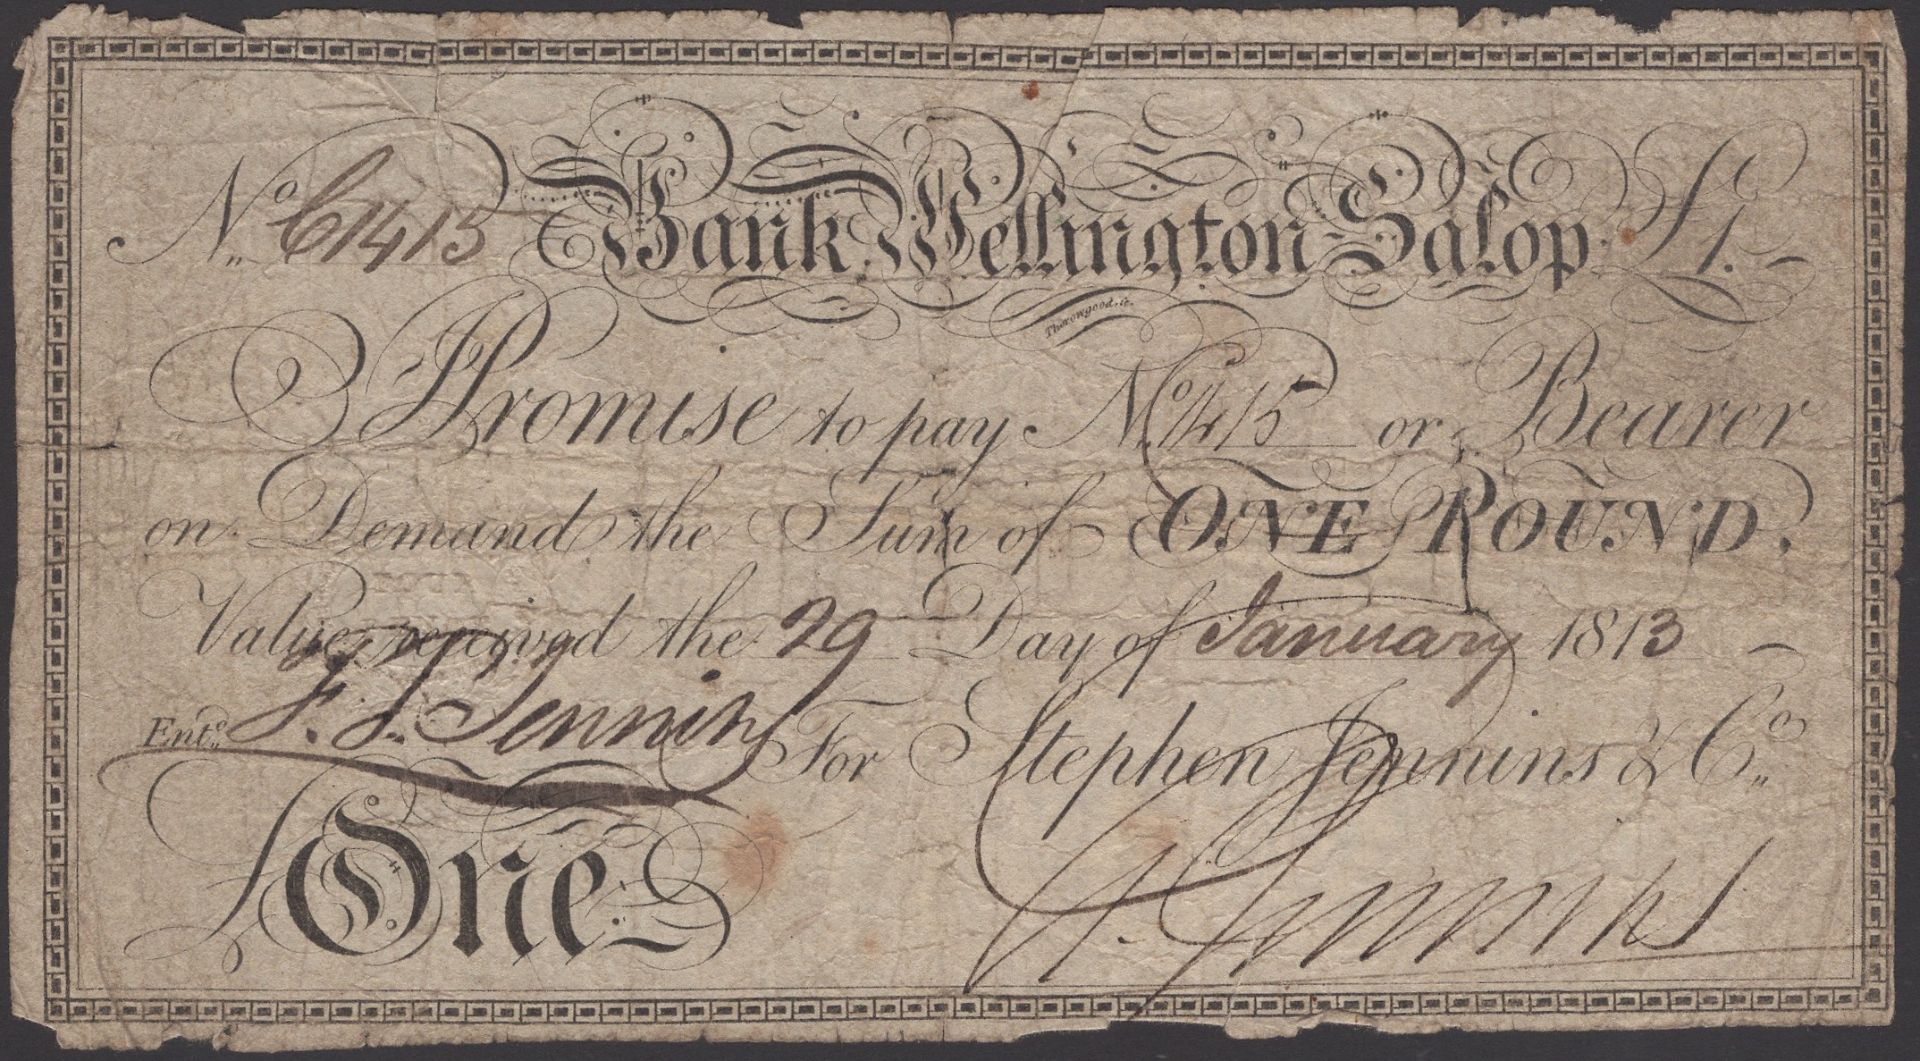 No. C1415 Bank Wellington Salop £1.-
Thorowgood. sc.
I Promise to pay No. 1415 or Bearer
on Demand the Sum of ONE POUND.
Value received the 29 Day of January 1813
Entd. F. J. Jennins For Stephen Jennins & Co.
One
S. Jennins